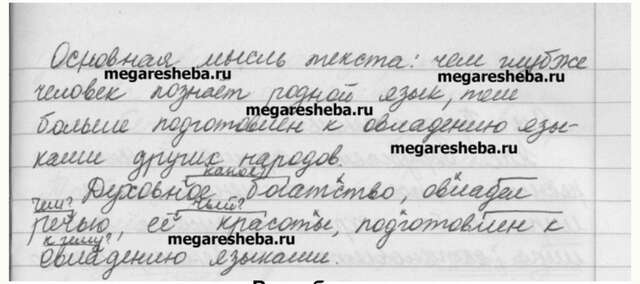 Основная мысль текста: чем глубже
megaresheba.ru
megaresheba.ru
человек познает родной язык, тем
megaresheba.ru
больше подготовлен к овладению язы-
ками других народов.
megaresheba.ru
какое?
Духовное богатство, овладел
чем? чьей?
речью, её красоты, подготовлен к
к чему?
megaresheba.ru
овладению языками.